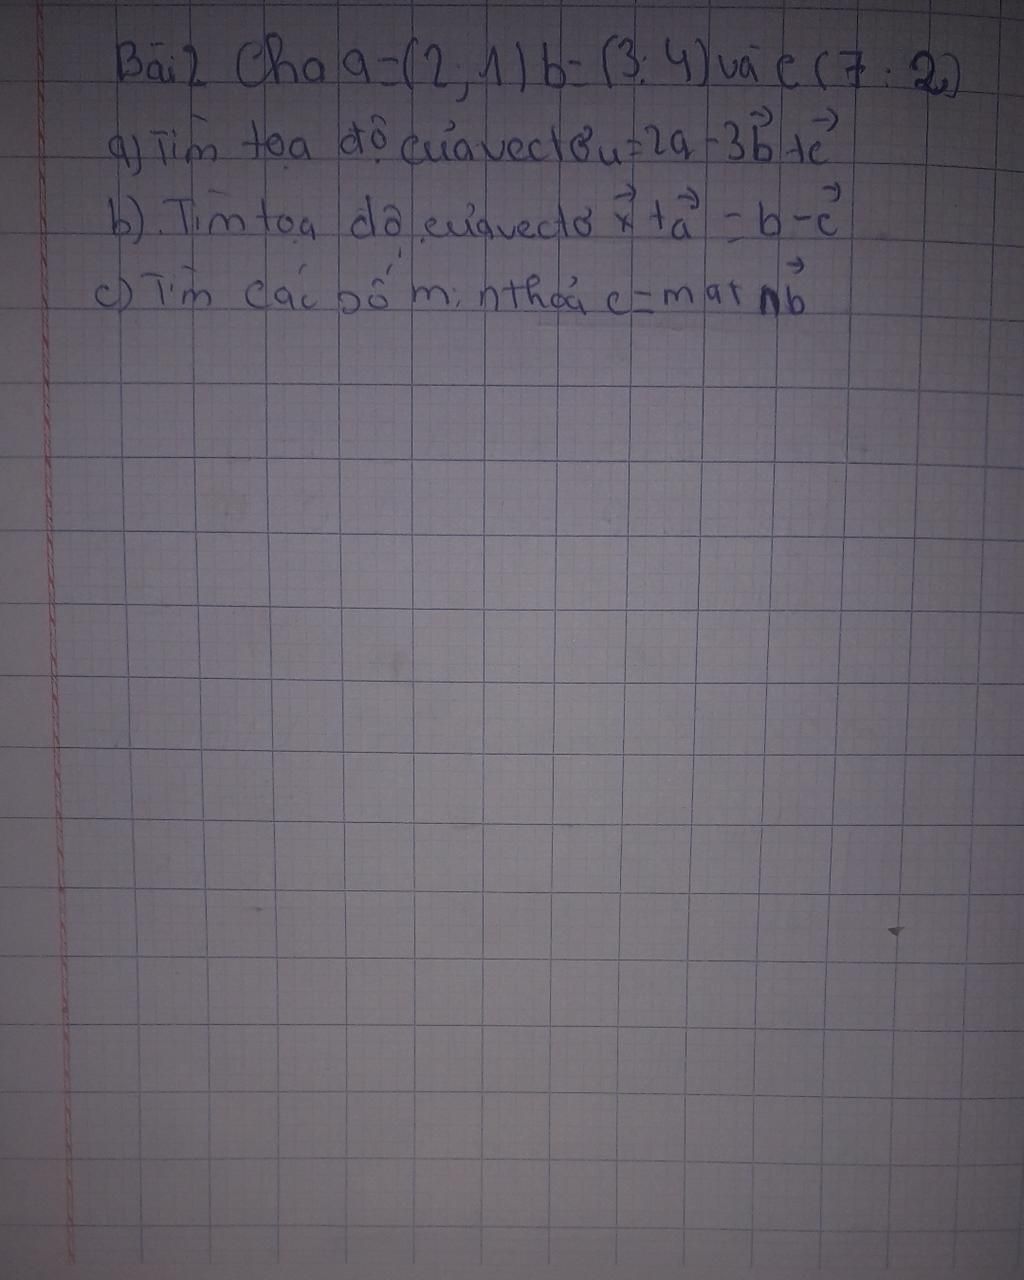 Bài 2 Cho a=(2; 1) b=(3; 4) và c (7; 2)
a) Tìm tọa độ của vectơ u=2a-3b⃗+c⃗
b). Tìm tọa độ của vectơ x⃗+a⃗ = b-c⃗
c) Tìm các số m; n thoả c=ma+nb⃗